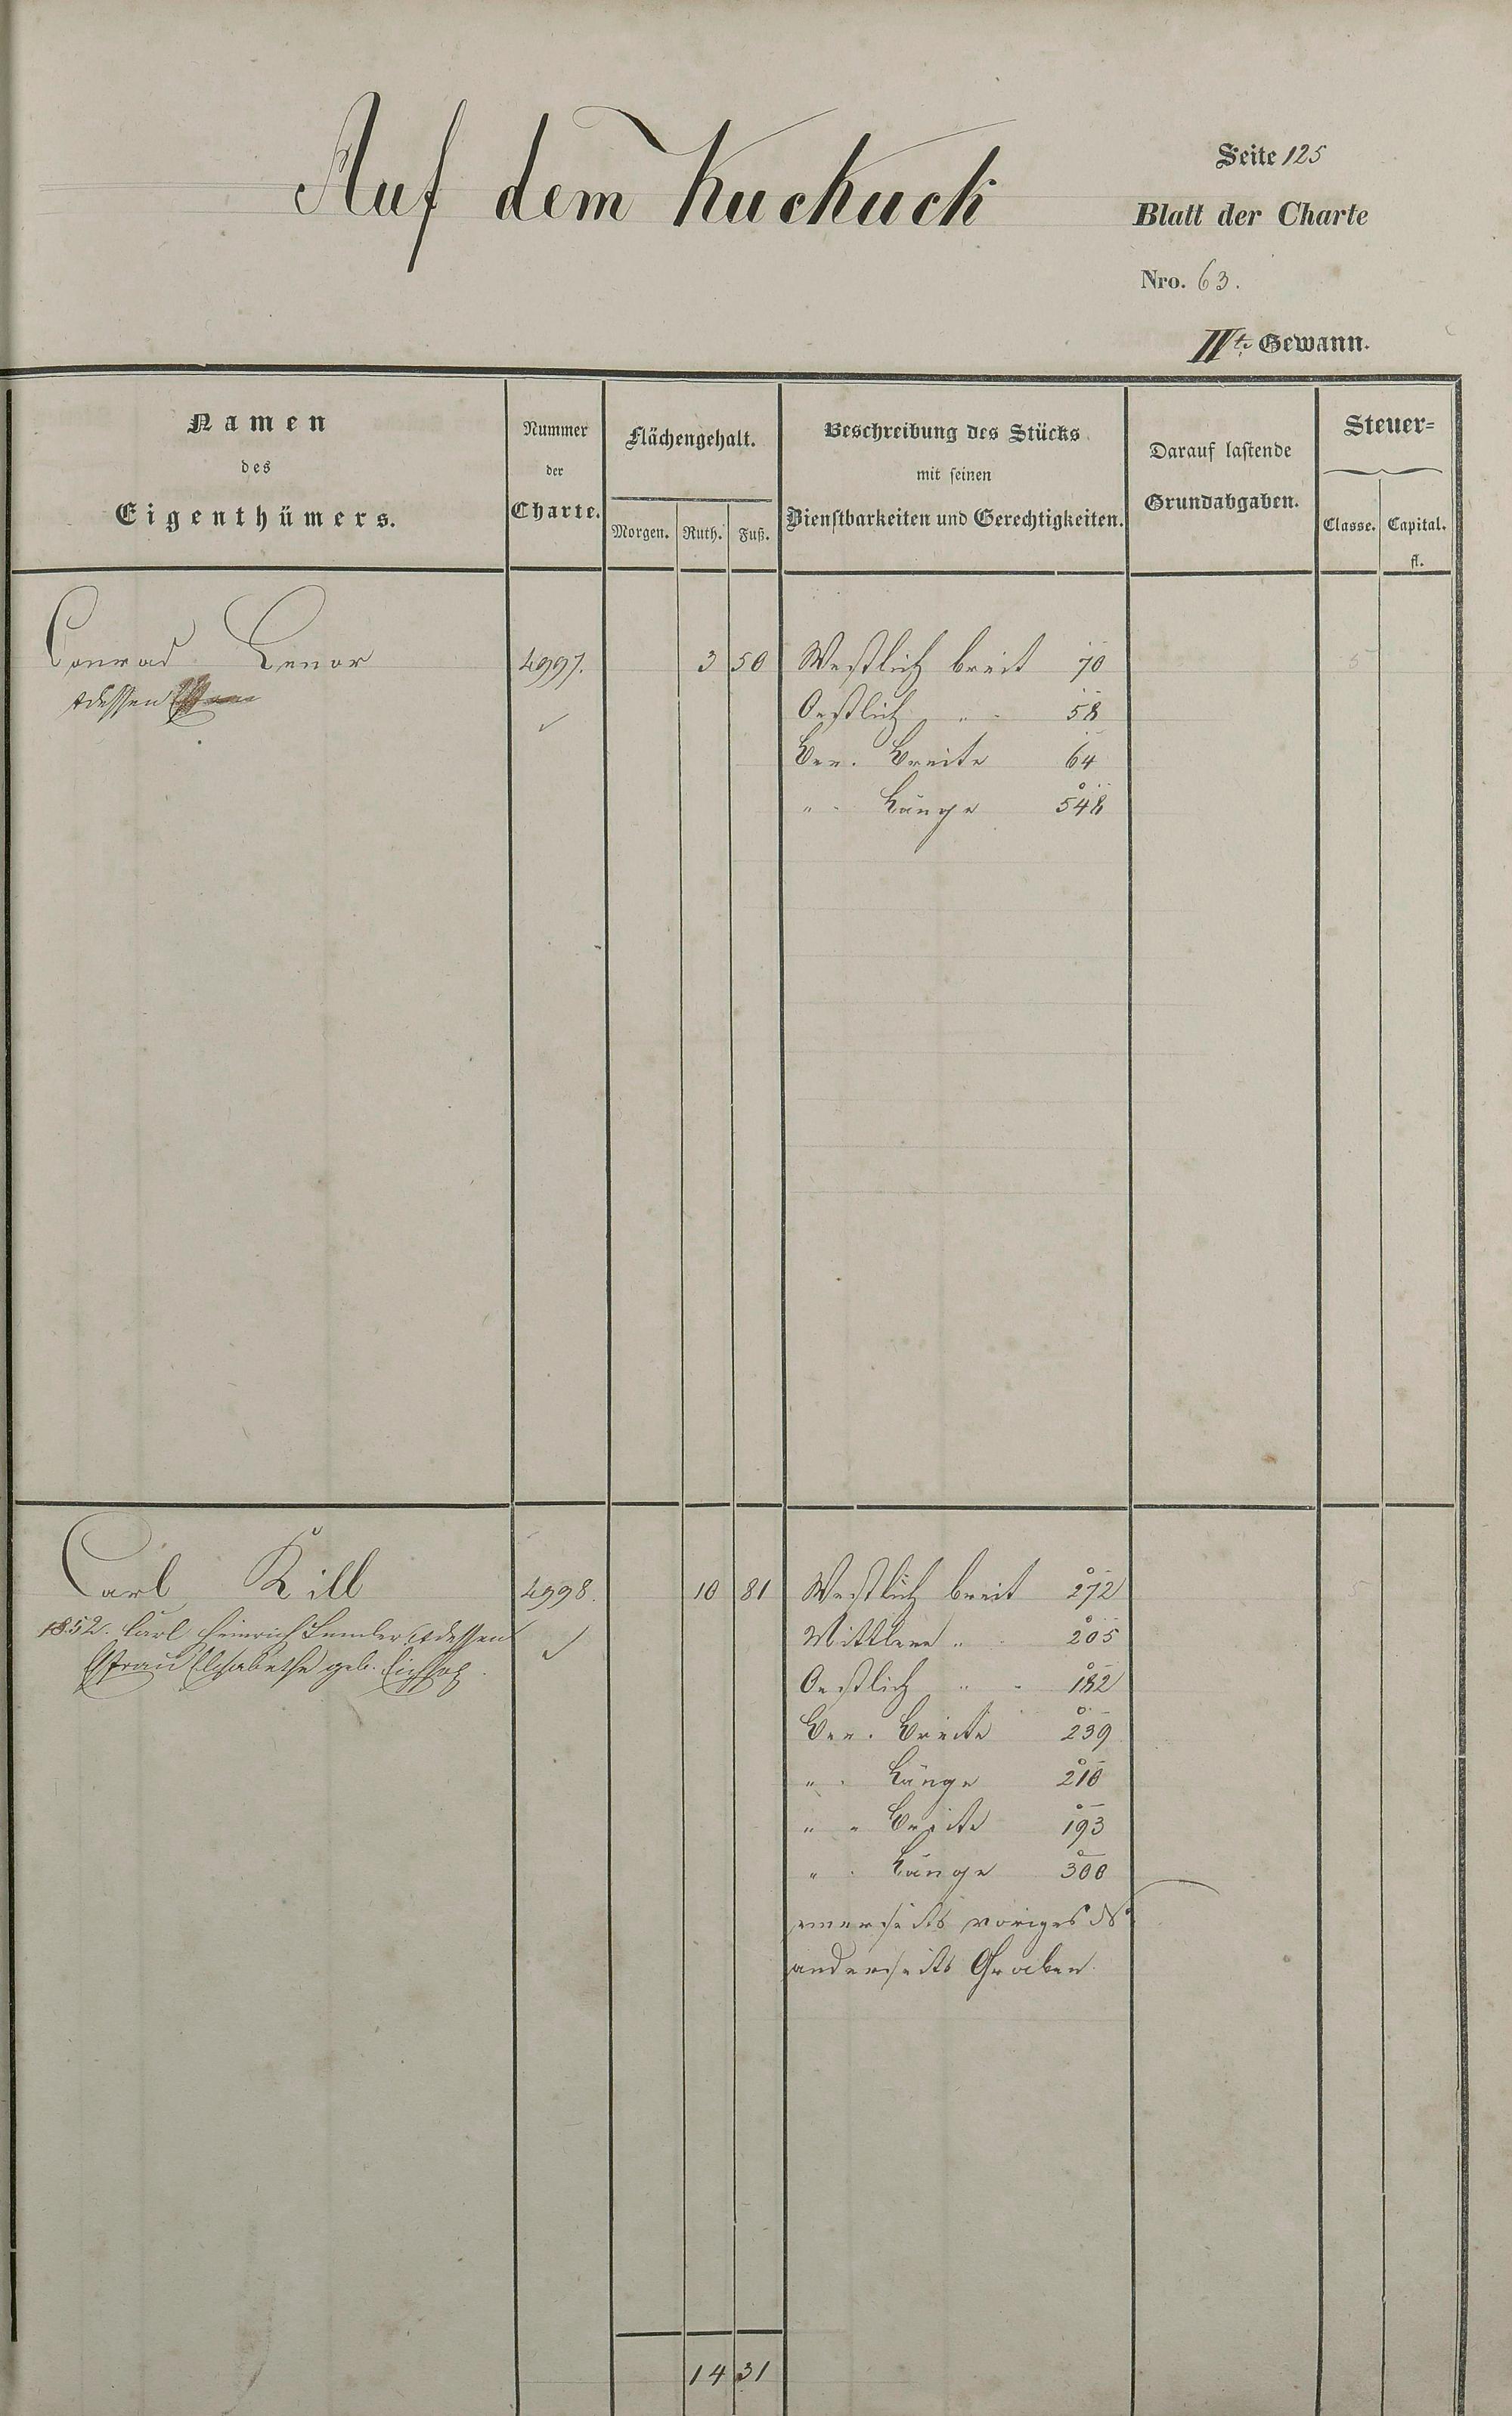 Auf dem Kuckuck
Seite 125
Blatt der Charte
Nro. 63.
IIte Gewann.
Namen
des
Eigenthümers.
Nummer
der
Charte.
Flächengehalt.
Morgen. Ruth. Fuß.
Beschreibung des Stücks
mit seinen
Dienstbarkeiten und Gerechtigkeiten.
Darauf lastende
Grundabgaben.
Steuer=
Classe. Capital.
fl.
Conrad 4997. 3 50 Westlich breit 70 5
dessen
Oestlich " 58
Ber. Breite 64
" Länge 548
Carl Kill 4998. 10 81 Westlich breit 272 5
1852. Carl Heinrich dessen
Mittlere " 205
Efrau Elisabethe geb.
Oestlich " 182
Ber. Breite 239
" Länge 210
" " Breite 193
" Länge 300
einerseits voriges
anderseits Graben
14 31